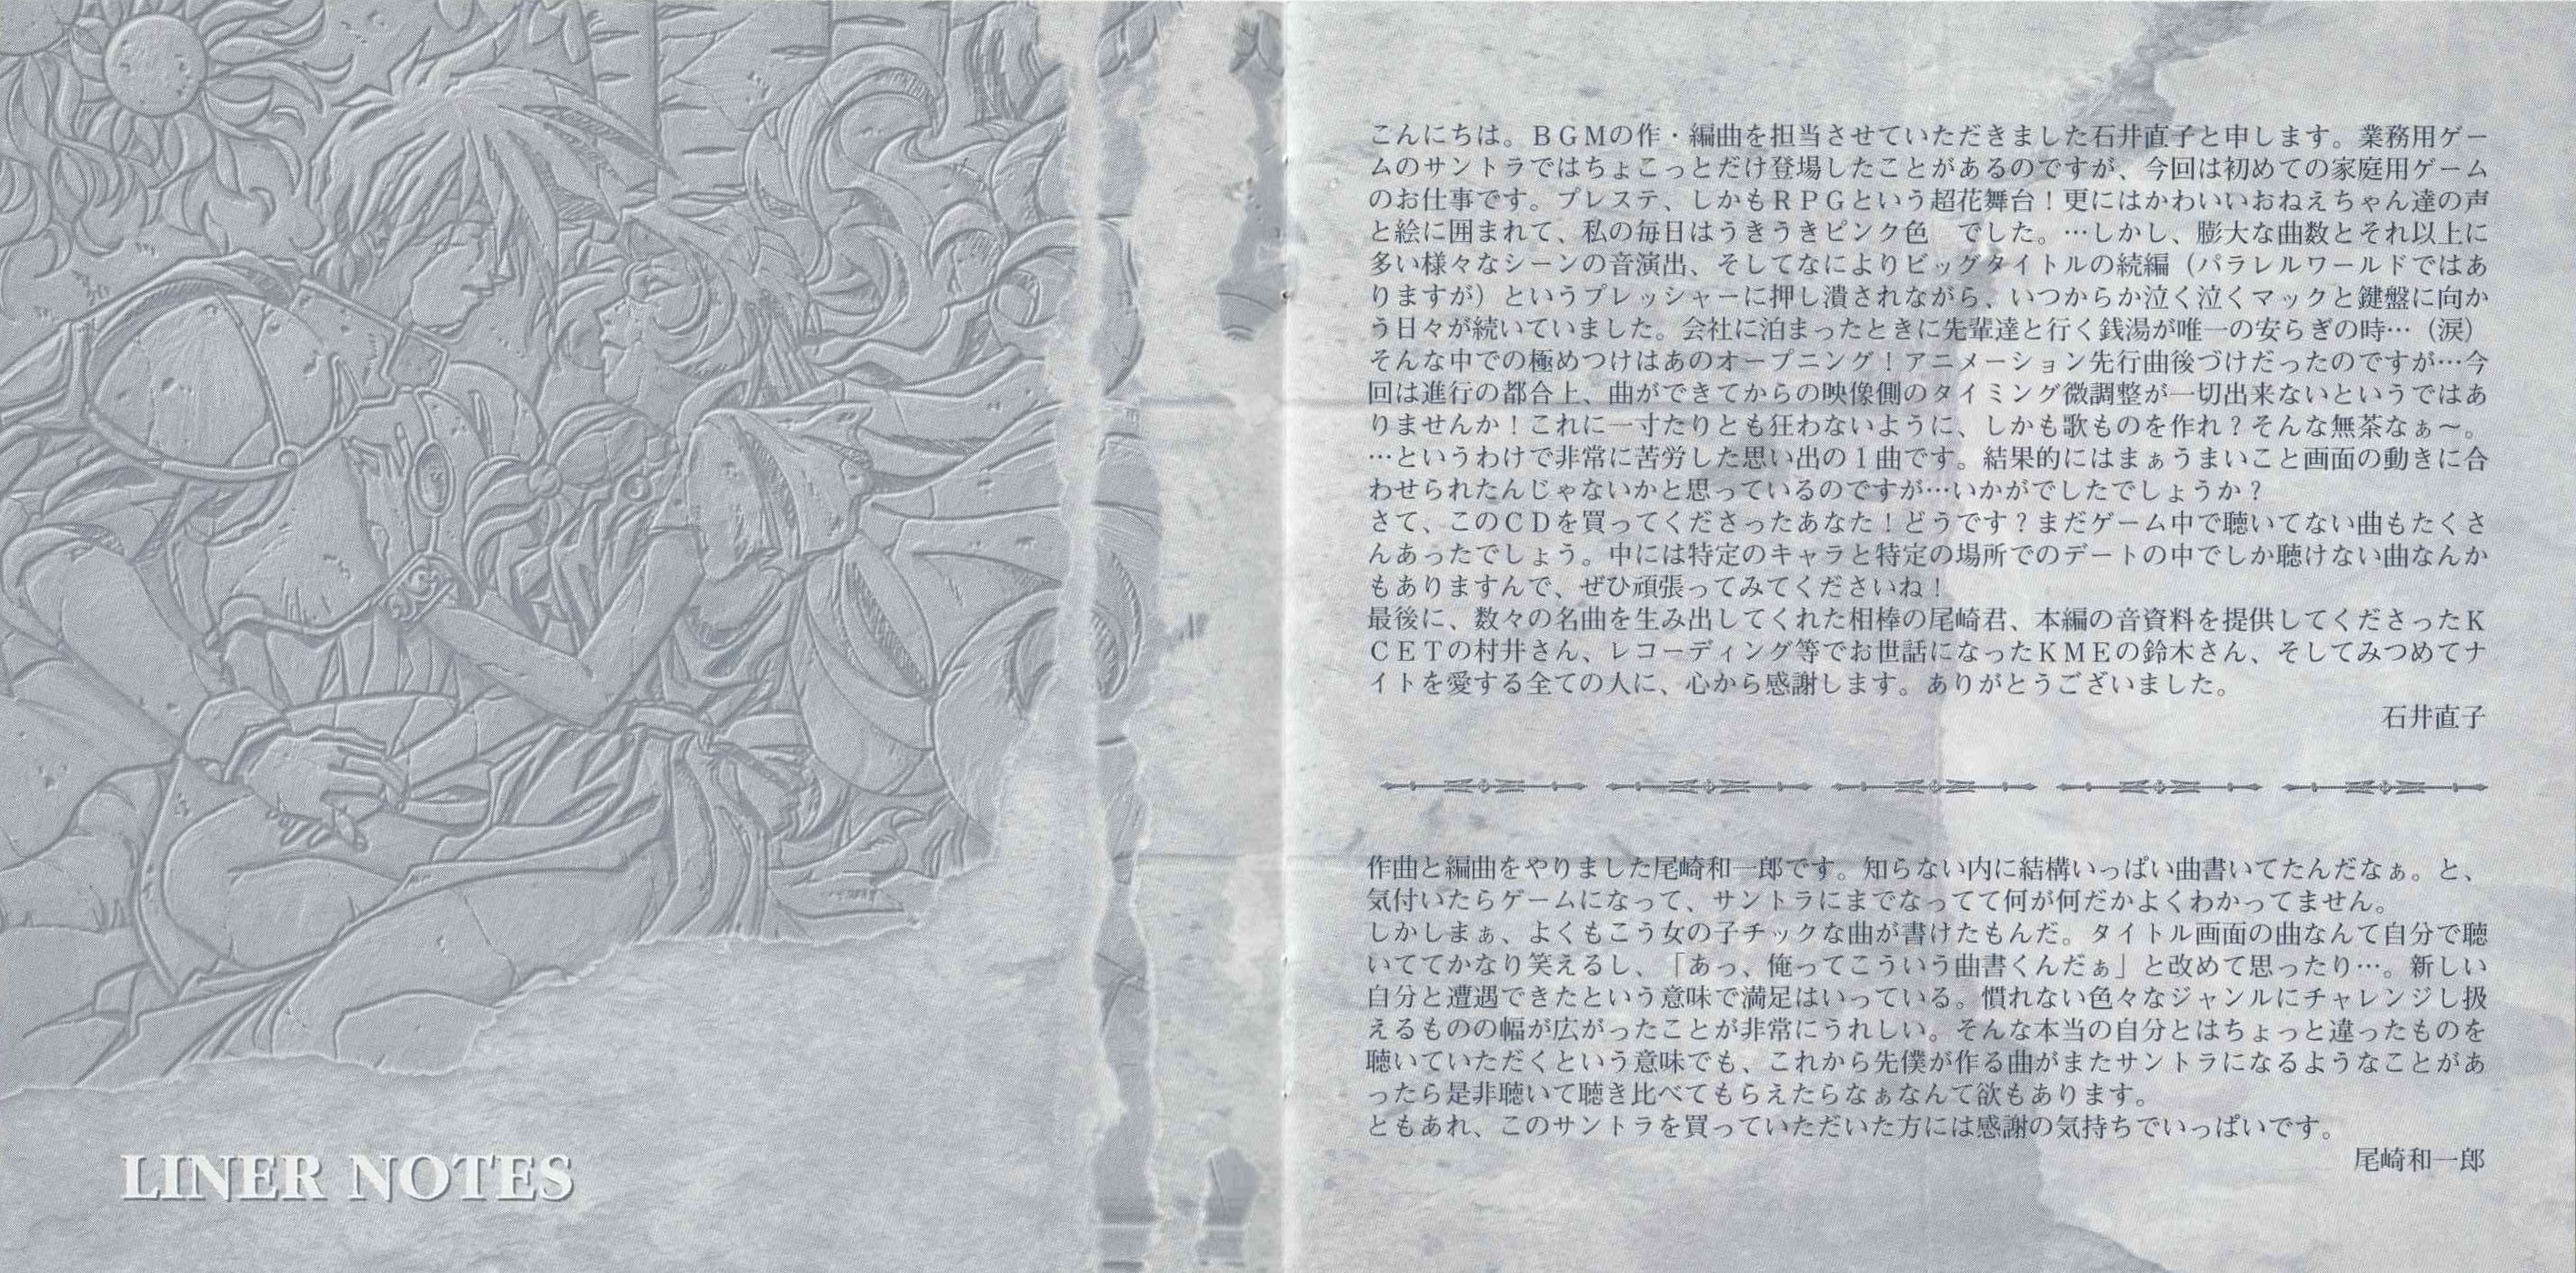 LINER NOTES
こんにちは。ＢＧＭの作・編曲を担当させていただきました石井直子と申します。業務用ゲー
ムのサントラではちょこっとだけ登場したことがあるのですが、今回は初めての家庭用ゲーム
のお仕事です。プレステ、しかもＲＰＧという超花舞台！更にはかわいいおねえちゃん達の声
と絵に囲まれて、私の毎日はうきうきピンク色　でした。…しかし、膨大な曲数とそれ以上に
多い様々なシーンの音演出、そしてなによりビッグタイトルの続編（パラレルワールドではあ
りますが）というプレッシャーに押し潰されながら、いつからか泣く泣くマックと鍵盤に向か
う日々が続いていました。会社に泊まったときに先輩達と行く銭湯が唯一の安らぎの時…（涙）
そんな中での極めつけはあのオープニング！アニメーション先行曲後づけだったのですが…今
回は進行の都合上、曲ができてからの映像側のタイミング微調整が一切出来ないというではあ
りませんか！これに一寸たりとも狂わないように、しかも歌ものを作れ？そんな無茶なぁ～。
…というわけで非常に苦労した思い出の１曲です。結果的にはまぁうまいこと画面の動きに合
わせられたんじゃないかと思っているのですが…いかがでしたでしょうか？
さて、このＣＤを買ってくださったあなた！どうです？まだゲーム中で聴いてない曲もたくさ
んあったでしょう。中には特定のキャラと特定の場所でのデートの中でしか聴けない曲なんか
もありますんで、ぜひ頑張ってみてくださいね！
最後に、数々の名曲を生み出してくれた相棒の尾崎君、本編の音資料を提供してくださったＫ
ＣＥＴの村井さん、レコーディング等でお世話になったＫＭＥの鈴木さん、そしてみつめてナ
イトを愛する全ての人に、心から感謝します。ありがとうございました。
石井直子
作曲と編曲をやりました尾崎和一郎です。知らない内に結構いっぱい曲書いてたんだなぁ。と、
気付いたらゲームになって、サントラにまでなってて何が何だかよくわかってません。
しかしまぁ、よくもこう女の子チックな曲が書けたもんだ。タイトル画面の曲なんて自分で聴
いててかなり笑えるし、「あっ、俺ってこういう曲書くんだぁ」と改めて思ったり…。新しい
自分と遭遇できたという意味で満足はいっている。慣れない色々なジャンルにチャレンジし扱
えるものの幅が広がったことが非常にうれしい。そんな本当の自分とはちょっと違ったものを
聴いていただくという意味でも、これから先僕が作る曲がまたサントラになるようなことがあ
ったら是非聴いて聴き比べてもらえたらなぁなんて欲もあります。
ともあれ、このサントラを買っていただいた方には感謝の気持ちでいっぱいです。
尾崎和一郎